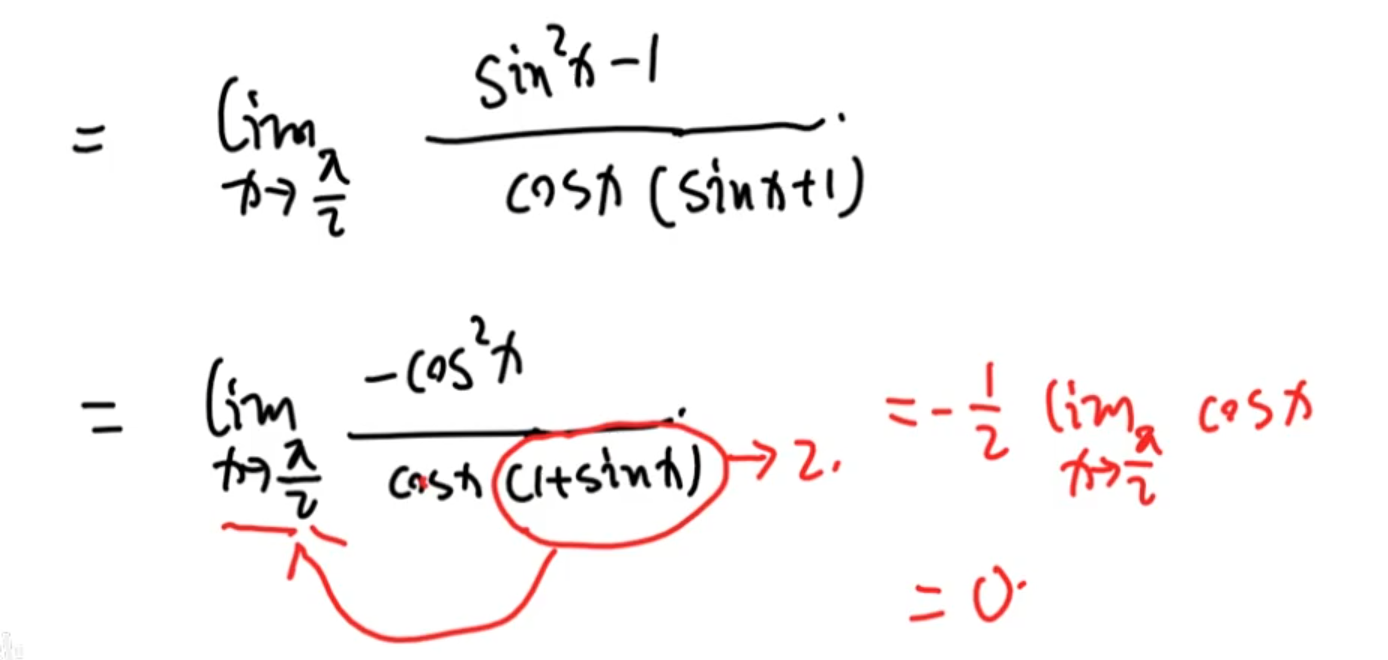 = lim x→π/2 (sin²x-1)/(cosx(sinx+1))
= lim x→π/2 (-cos²x)/(cosx(1+sinx)) → 2. = -1/2 lim x→π/2 cosx
= 0.